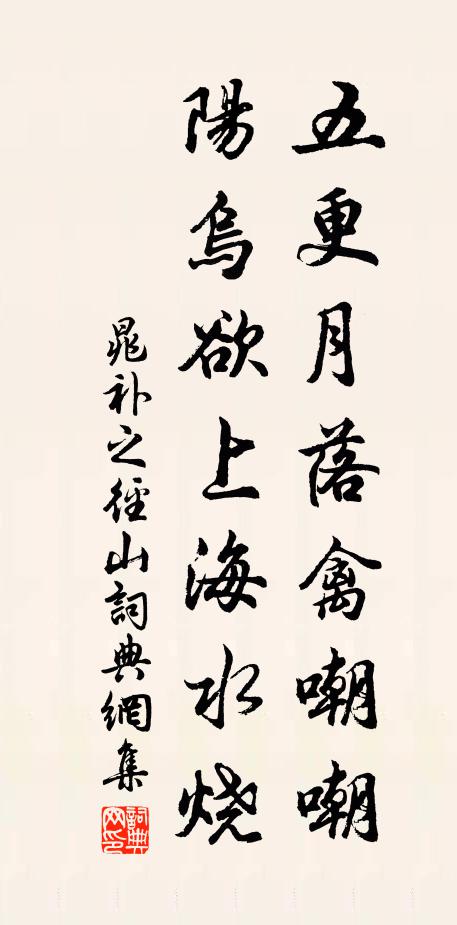 五更月落禽嘲嘲
陽烏欲上海水烧
晁补之徑山詞典網集
詞典网印